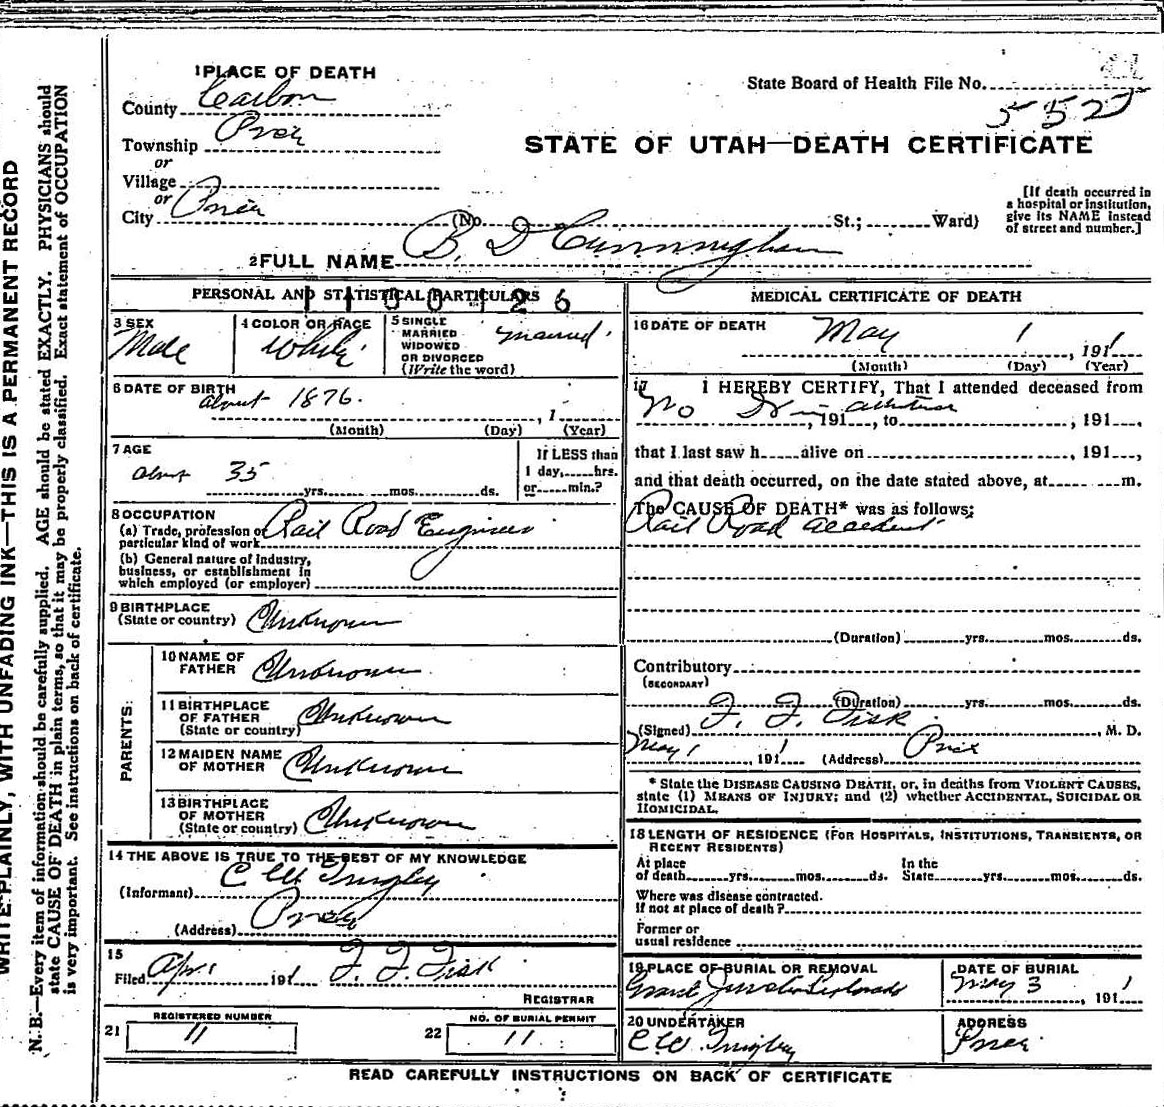 WRITE PLAINLY, WITH UNFADING INK—THIS IS A PERMANENT RECORD
N. B.—Every item of information should be carefully supplied. AGE should be stated EXACTLY. PHYSICIANS should
state CAUSE OF DEATH in plain terms, so that it may be properly classified. Exact statement of OCCUPATION
is very important. See instructions on back of certificate.
1 PLACE OF DEATH
County Carbon
Township Price
or
Village
or
City Price (No. St.; Ward)
State Board of Health File No.
552
STATE OF UTAH—DEATH CERTIFICATE
[If death occurred in
a hospital or institution,
give its NAME instead
of street and number.]
2 FULL NAME B. D Cunningham
PERSONAL AND STATISTICAL PARTICULARS
1100126
3 SEX
Male
4 COLOR OR RACE
White
5 SINGLE
MARRIED
WIDOWED
OR DIVORCED
(Write the word)
married
6 DATE OF BIRTH
about 1876. , 1
(Month) (Day) (Year)
7 AGE
about 35 yrs. mos. ds.
If LESS than
1 day, hrs.
or min.?
8 OCCUPATION
(a) Trade, profession or
particular kind of work Rail Road Engineer
(b) General nature of industry,
business, or establishment in
which employed (or employer)
9 BIRTHPLACE
(State or country) Unknown
PARENTS:
10 NAME OF
FATHER Unknown
11 BIRTHPLACE
OF FATHER
(State or country) Unknown
12 MAIDEN NAME
OF MOTHER Unknown
13 BIRTHPLACE
OF MOTHER
(State or country) Unknown
14 THE ABOVE IS TRUE TO THE BEST OF MY KNOWLEDGE
(Informant) C W Tingley
(Address) Price
15
Filed Apr 1 191 F. F. Fisk
REGISTRAR
21 REGISTERED NUMBER
11
22 NO. OF BURIAL PERMIT
11
MEDICAL CERTIFICATE OF DEATH
16 DATE OF DEATH
May 1 , 1911
(Month) (Day) (Year)
17 I HEREBY CERTIFY, That I attended deceased from
No Dr in , 191 , to , 191 ,
that I last saw h alive on , 191 ,
and that death occurred, on the date stated above, at m.
The CAUSE OF DEATH* was as follows:
Rail Road accident
(Duration) yrs. mos. ds.
Contributory
(SECONDARY)
(Duration) yrs. mos. ds.
(Signed) F. F. Fisk , M. D.
May 1 1911 (Address) Price
* State the DISEASE CAUSING DEATH, or, in deaths from VIOLENT CAUSES,
state (1) MEANS OF INJURY; and (2) whether ACCIDENTAL, SUICIDAL OR
HOMICIDAL.
18 LENGTH OF RESIDENCE (FOR HOSPITALS, INSTITUTIONS, TRANSIENTS, OR
RECENT RESIDENTS)
At place
of death yrs. mos. ds.
In the
State yrs. mos. ds.
Where was disease contracted.
If not at place of death?
Former or
usual residence
19 PLACE OF BURIAL OR REMOVAL
Grand Junction Colorado
DATE OF BURIAL
May 3 , 1911
20 UNDERTAKER
C W Tingley
ADDRESS
Price
READ CAREFULLY INSTRUCTIONS ON BACK OF CERTIFICATE